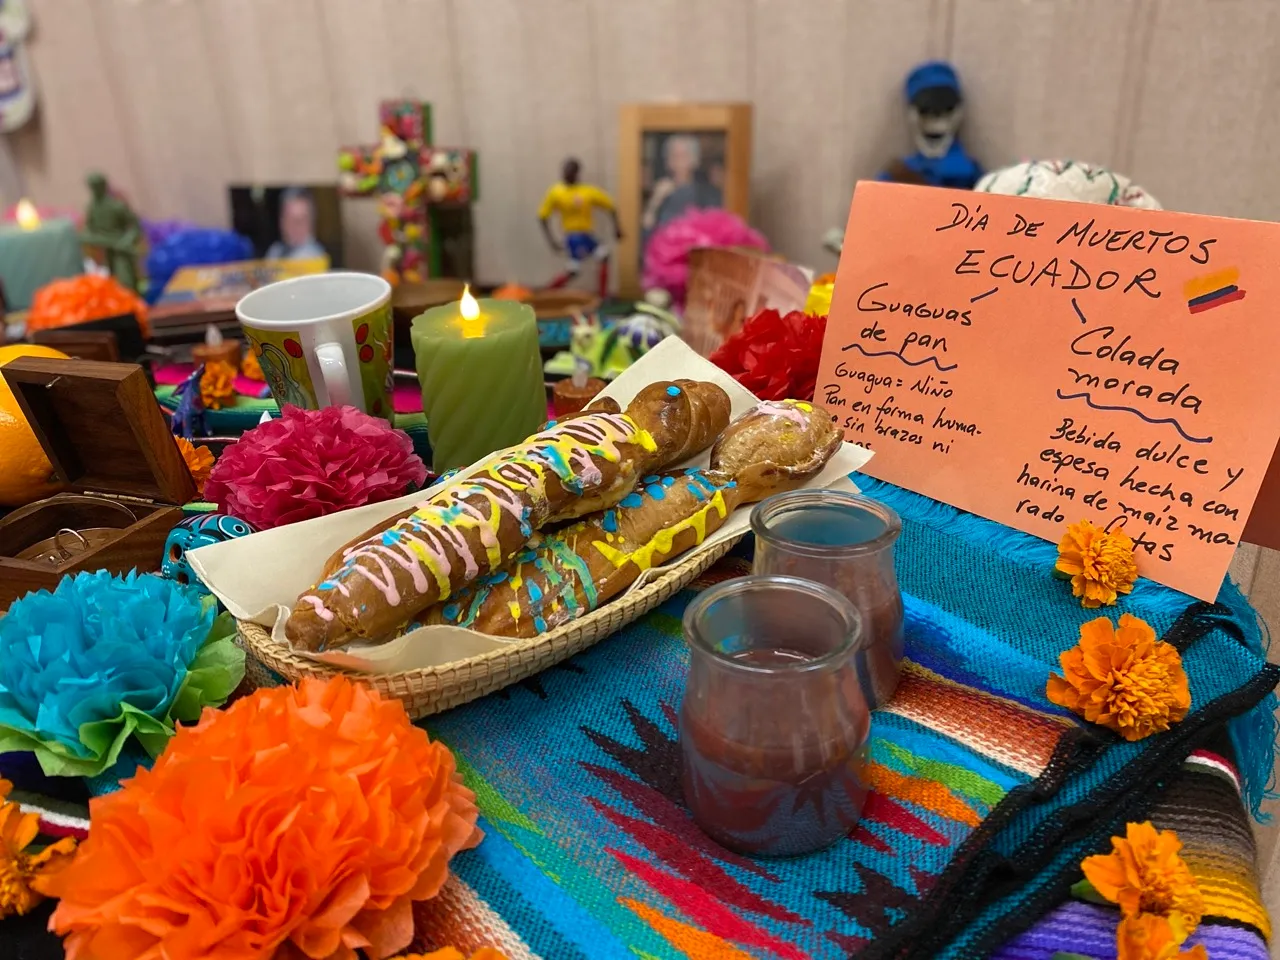 DÍA DE MUERTOS
ECUADOR
Guaguas
de pan
Guagua = Niño
Pan en forma huma-
a sin brazos ni
Colada
morada
Bebida dulce y
espesa hecha con
harina de maíz mo-
rado